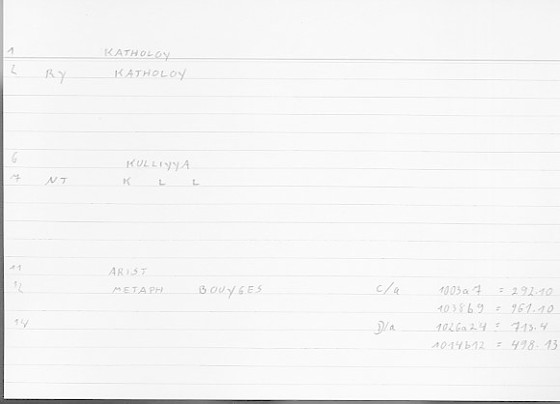 1 KATHOLOY
2 RY KATHOLOY
6 KULLIYYA
7 NT K L L
11 ARIST
12 METAPH BOUYGES C/a 1003a7 = 292.10
1038b9 = 961.10
14 D/a 1026a24 = 713.4
1014b12 = 498.13